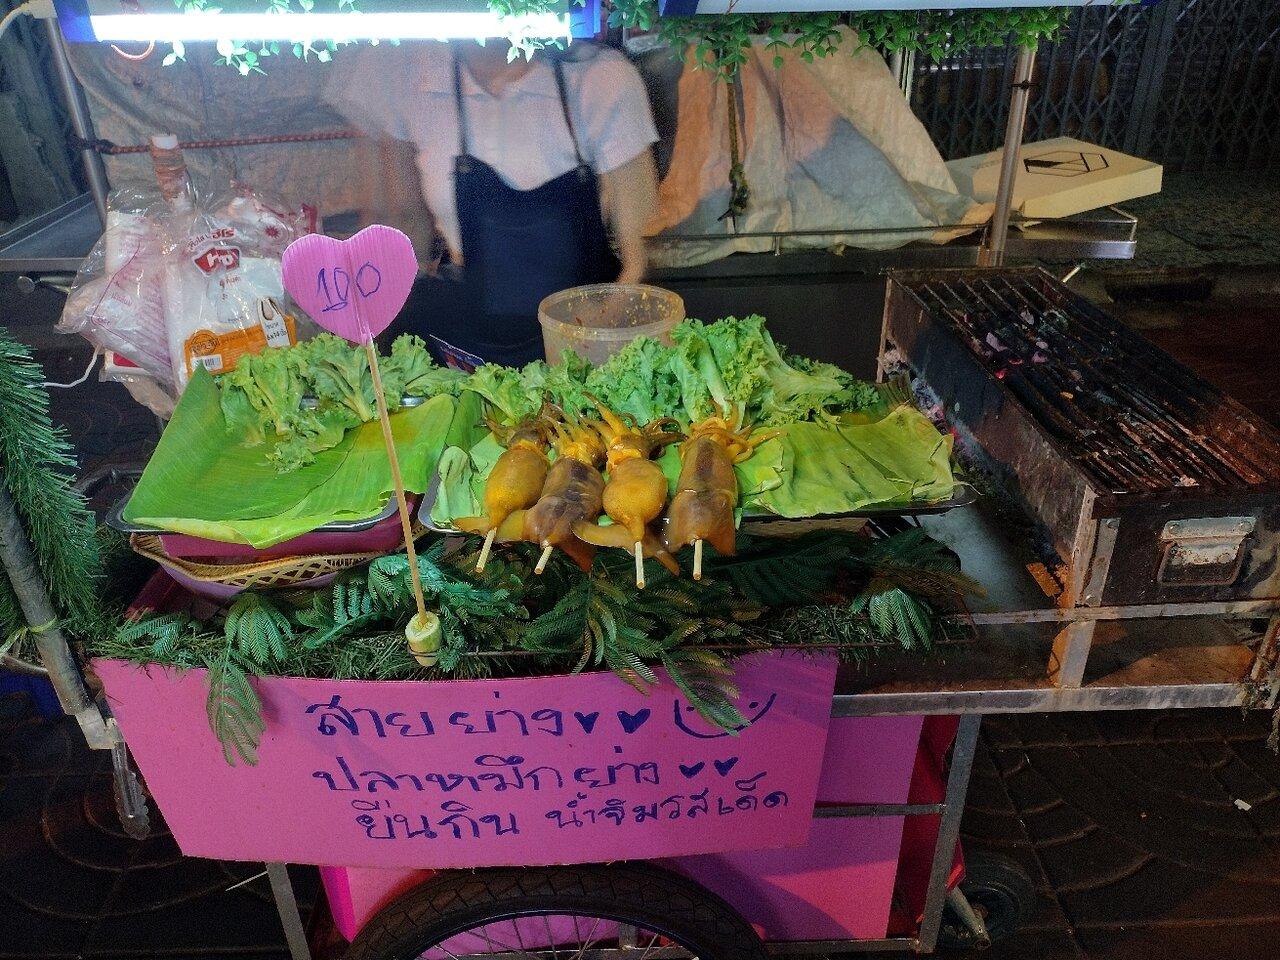 100
สายย่าง
ปลาหมึกย่าง
ยืนกิน น้ำจิ้มรสเด็ด